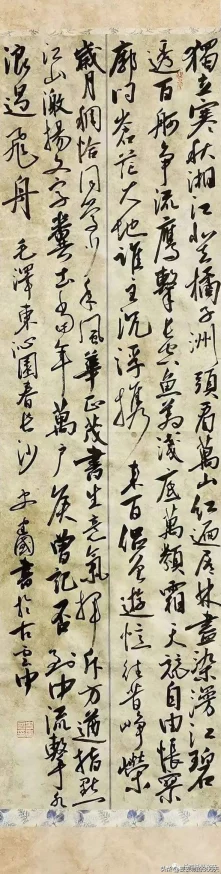 獨立寒秋湘江北去橘子洲頭看萬山紅遍層林盡染漫江碧
透百舸爭流鷹擊長空魚翔淺底萬類霜天競自由悵寥
廓問蒼茫大地誰主沉浮攜來百侶曾遊憶往昔崢嶸
歲月稠恰同學少年風華正茂書生意氣揮斥方遒指點
江山激揚文字糞土當年萬戶侯曾記否到中流擊水
浪遏飛舟 毛澤東沁園春長沙 國書於古雲中